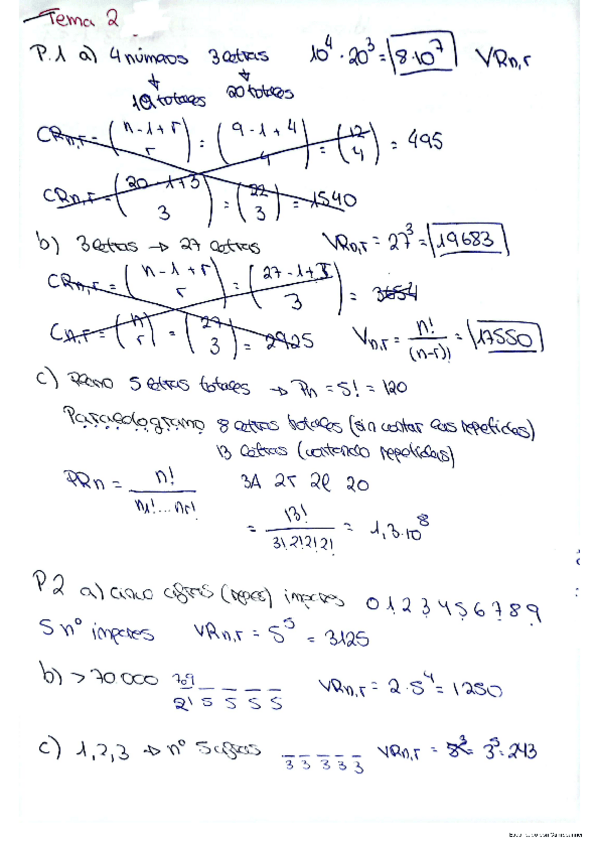 Tema 2
P.1 a) 4 números 3 letras 10⁴ · 20³ = 8·10⁷ VRn,r
10 totales 20 totales
CRn,r = (n-1+r / r) = (9-1+4 / 4) = (12 / 4) = 495
CRn,r = (20-1+3 / 3) = (22 / 3) = 1540
b) 3 letras → 27 letras VRn,r = 27³ = 19683
CRn,r = (n-1+r / r) = (27-1+3 / 3) = 3654
Cn,r = (n / r) = (27 / 3) = 2925 Vn,r = n! / (n-r)! = 17550
c) 5 letras totales → Pn = 5! = 120
Paralelogramo 8 letras totales (sin contar las repetidas)
13 letras (contando repetidas)
PRn = n! / n1!...nr! 3A 2r 2l 2o
= 13! / 3!·2!·2!·2! = 1,3·10⁸
P2 a) cinco cifras impares 0 1 2 3 4 5 6 7 8 9
5 nº impares VRn,r = 5⁵ = 3125
b) >70000 7 o 9
2 5 5 5 5 VRn,r = 2·5⁴ = 1250
c) 1, 2, 3 → nº 5 cifras 3 3 3 3 3 VRn,r = 3⁵ = 243